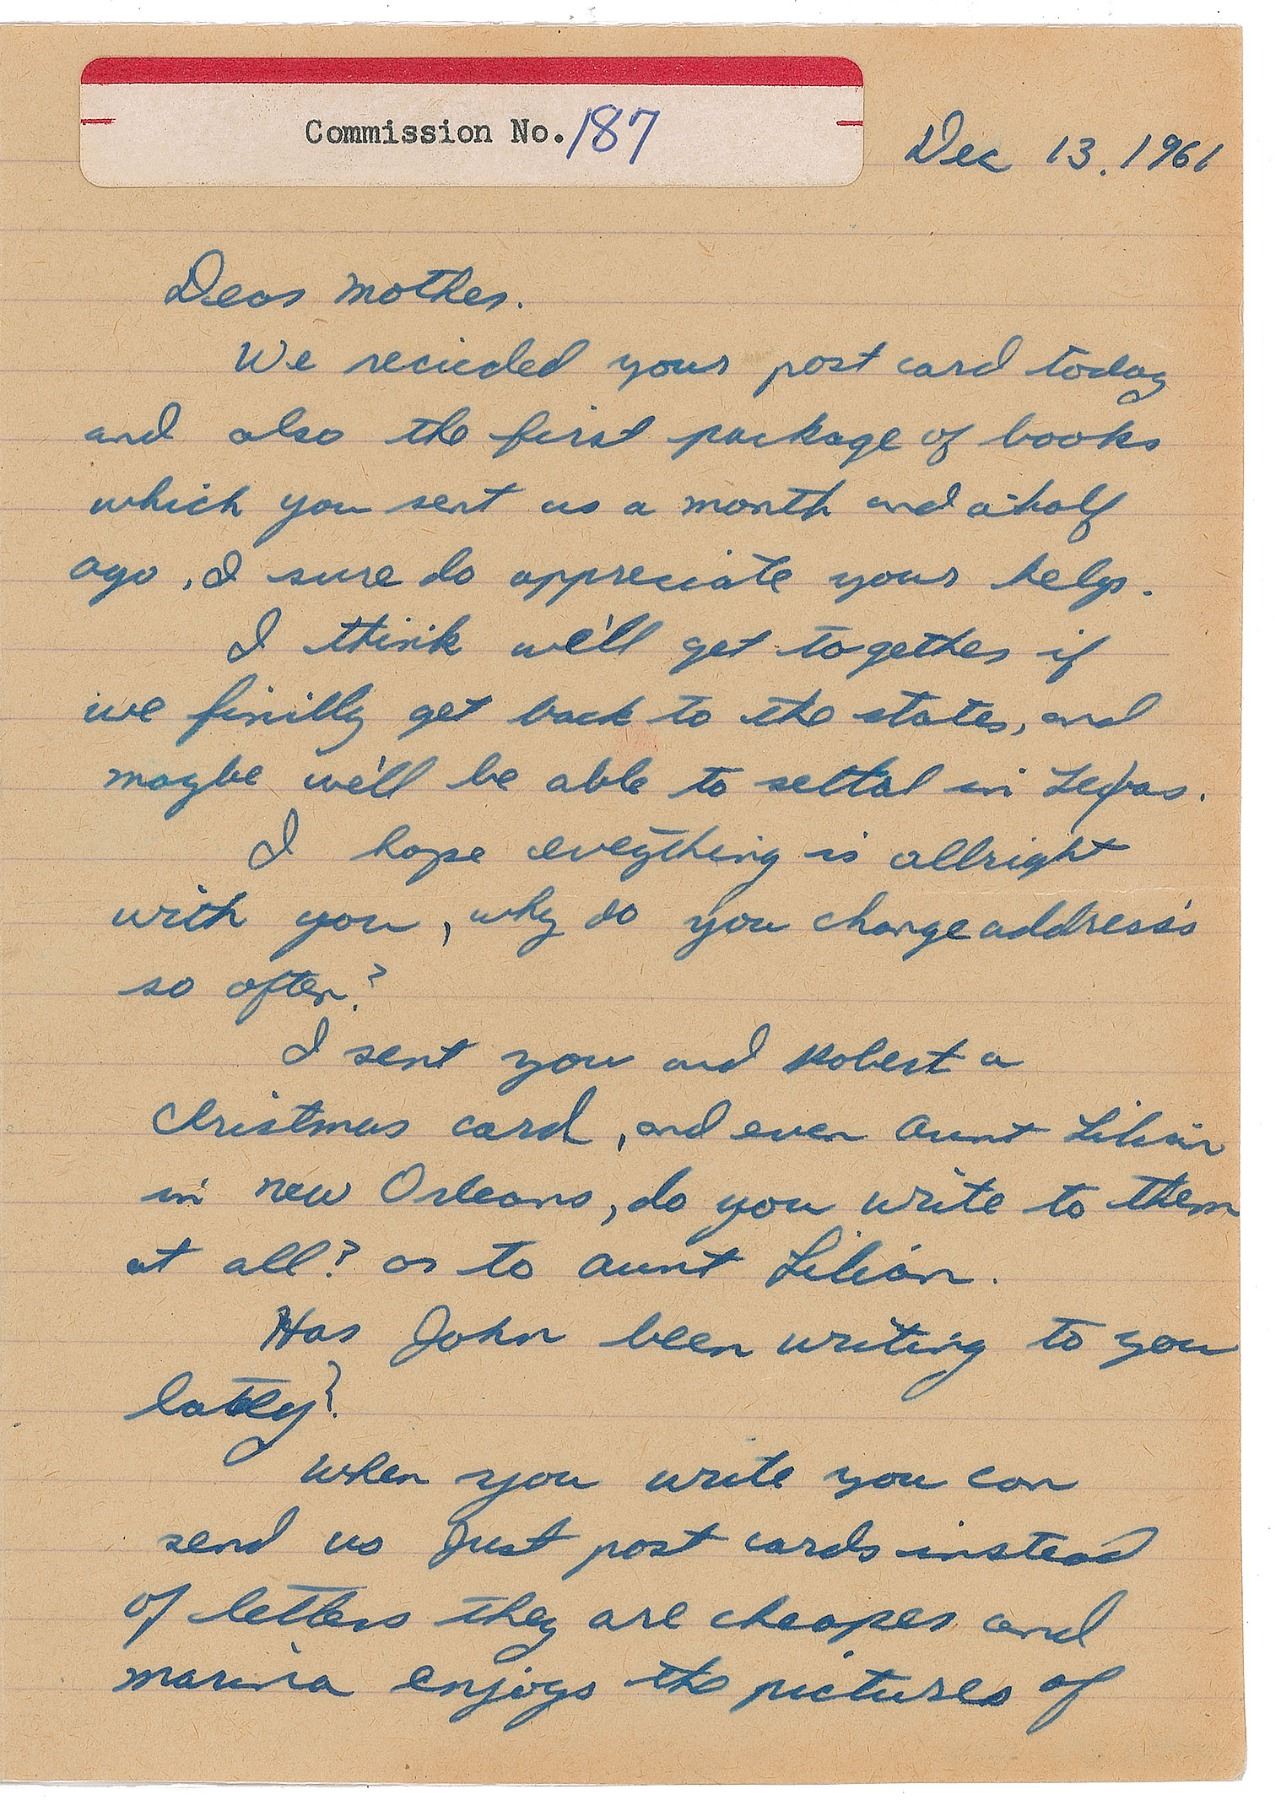 Commission No. 187
Dec 13. 1961
Dear mother.
We recieded your post card today
and also the first package of books
which you sent us a month and a half
ago, I sure do appreciate your help.
I think we'll get together if
we finilly get back to the states, and
maybe we'll be able to settal in Texas.
I hope eveything is allright
with you, why do you change address's
so often?
I sent you and Robert a
Christmas card, and even Aunt Lilian
in new Orleans, do you write to them
at all? or to Aunt Lilian.
Has John been writing to you
latly?
When you write you can
send us just post cards instead
of letters they are cheaper and
marina enjoys the pictures of